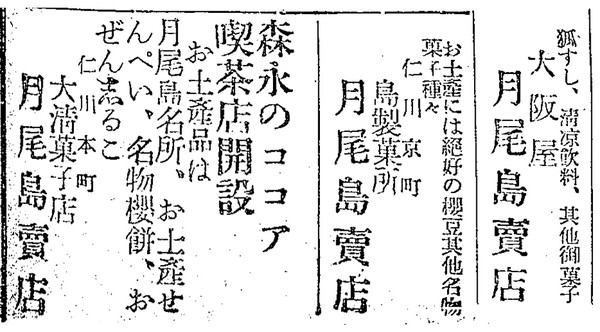 狐すし、清凉飮料、其他御菓子
大阪屋
月尾島賣店
お土產には絕好の櫻豆其他名物
菓子種々
仁川京町
島製菓所
月尾島賣店
森永のココア
喫茶店開設
お土產品は
月尾島名所、お土產せ
んべい、名物櫻餠、お
ぜん志るこ
仁川本町
大淸菓子店
月尾島賣店